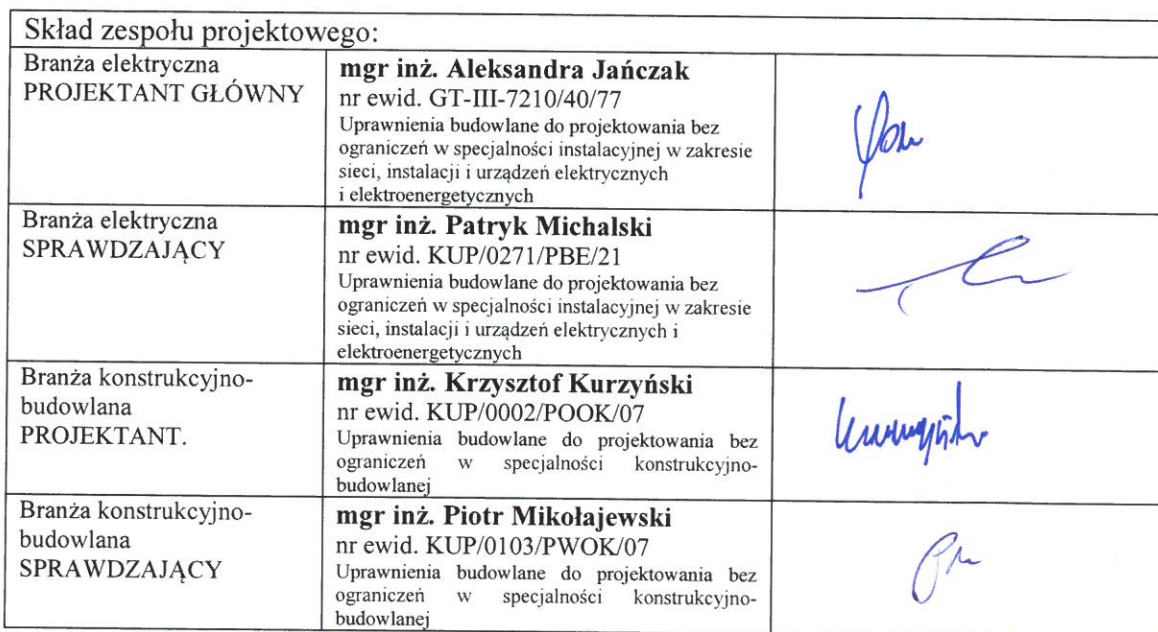 Skład zespołu projektowego:
Branża elektryczna
PROJEKTANT GŁÓWNY
mgr inż. Aleksandra Jańczak
nr ewid. GT-III-7210/40/77
Uprawnienia budowlane do projektowania bez
ograniczeń w specjalności instalacyjnej w zakresie
sieci, instalacji i urządzeń elektrycznych
i elektroenergetycznych
Branża elektryczna
SPRAWDZAJĄCY
mgr inż. Patryk Michalski
nr ewid. KUP/0271/PBE/21
Uprawnienia budowlane do projektowania bez
ograniczeń w specjalności instalacyjnej w zakresie
sieci, instalacji i urządzeń elektrycznych i
elektroenergetycznych
Branża konstrukcyjno-
budowlana
PROJEKTANT.
mgr inż. Krzysztof Kurzyński
nr ewid. KUP/0002/POOK/07
Uprawnienia budowlane do projektowania bez
ograniczeń w specjalności konstrukcyjno-
budowlanej
Branża konstrukcyjno-
budowlana
SPRAWDZAJĄCY
mgr inż. Piotr Mikołajewski
nr ewid. KUP/0103/PWOK/07
Uprawnienia budowlane do projektowania bez
ograniczeń w specjalności konstrukcyjno-
budowlanej